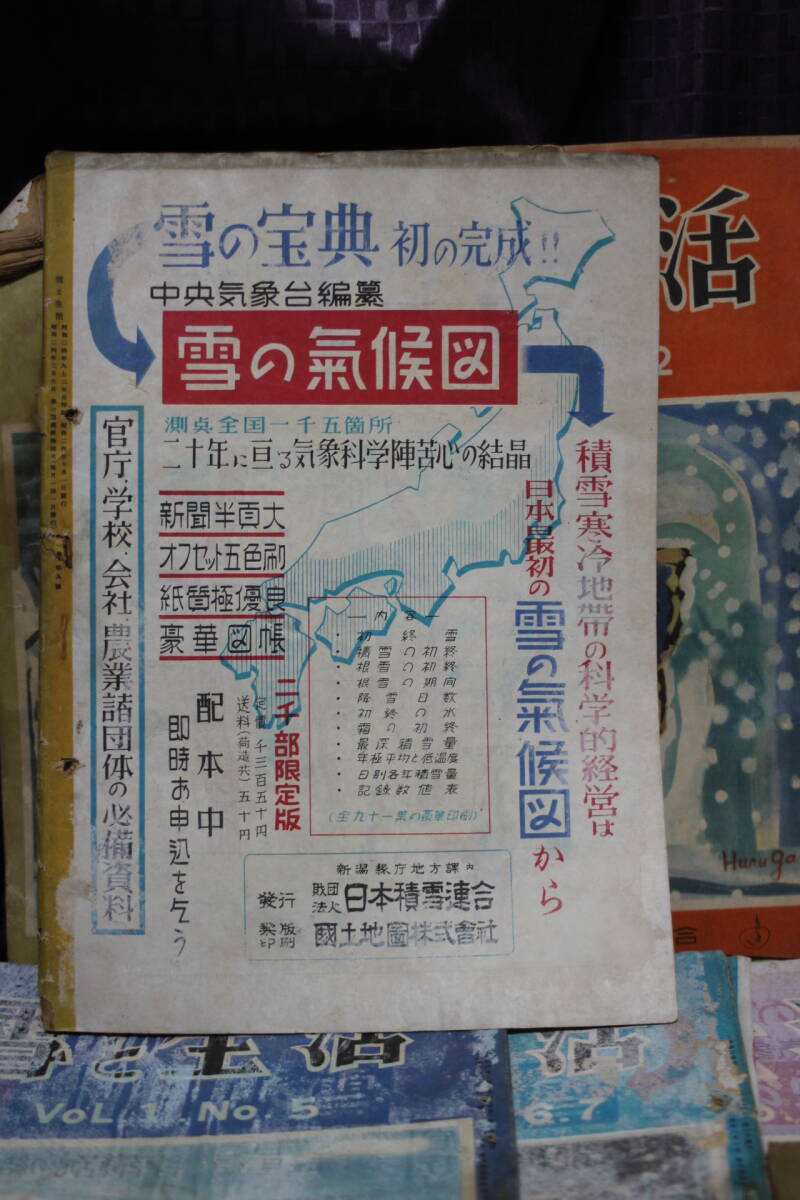 雪の宝典 初の完成!!
中央気象台編纂
雪の氣候図
測点全国一千五箇所
二十年に亘る気象科学陣苦心の結晶
積雪寒冷地帯の科学的経営は
日本最初の
雪の氣候図から
官庁・学校・会社・農業諸団体の必備資料
新聞半頁大
オフセット五色刷
紙質極優良
豪華図帳
二千部限定版
定價 千三百五十円
送料(荷造共)五十円
配本中
即時お申込を乞う
—内容—
・初終雪
・積雪の初終
・根雪の初終
・根雪の期間
・降雪日数
・初終の氷
・霜の初終
・最深積雪量
・年極平均と低温度
・日別各年積雪量
・記録数値表
(全九十一葉の豪華印刷)
新潟縣庁地方課内
発行 財団法人 日本積雪連合
製版印刷 國土地圖株式會社
雪と生活
活
2
Huruga
合
と生活
VOL.1.No.5
活
6.7